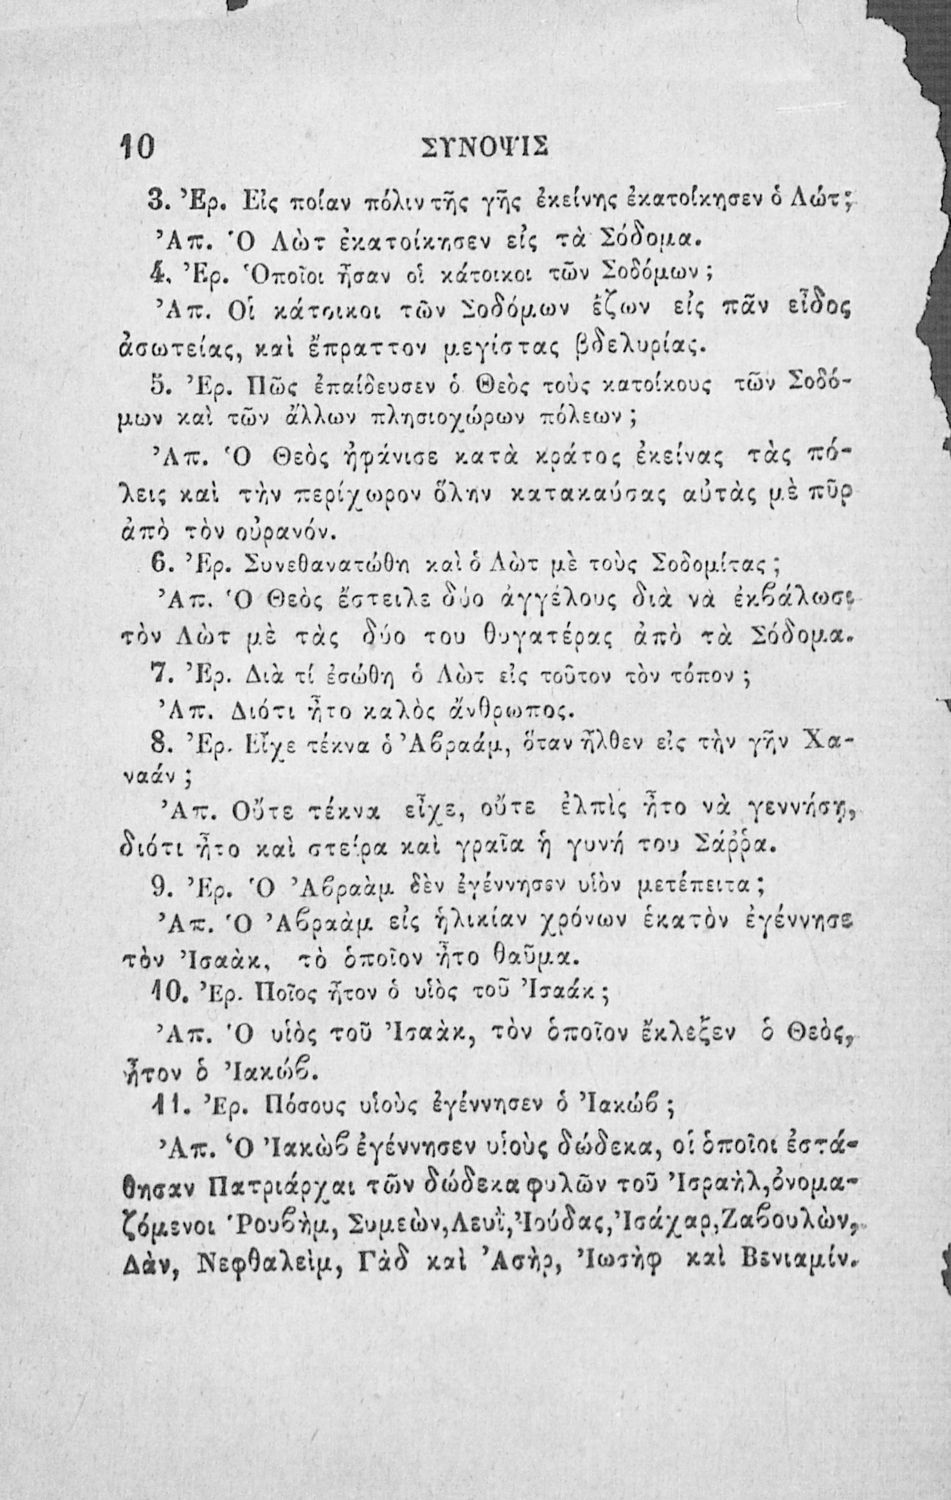 10 ΣΥΝΟΨΙΣ
3. Ἐρ. Εἰς ποίαν πόλιν τῆς γῆς ἐκείνης ἐκατοίκησεν ὁ Λώτ;
Ἀπ. Ὁ Λὼτ ἐκατοίκησεν εἰς τὰ Σόδομα.
4. Ἐρ. Ὁποῖοι ἦσαν οἱ κάτοικοι τῶν Σοδόμων;
Ἀπ. Οἱ κάτοικοι τῶν Σοδόμων ἔζων εἰς πᾶν εἶδος
ἀσωτείας, καὶ ἔπραττον μεγίστας βδελυρίας.
5. Ἐρ. Πῶς ἐπαίδευσεν ὁ Θεὸς τοὺς κατοίκους τῶν Σοδό-
μων καὶ τῶν ἄλλων πλησιοχώρων πόλεων;
Ἀπ. Ὁ Θεὸς ἠφάνισε κατὰ κράτος ἐκείνας τὰς πό-
λεις καὶ τὴν περίχωρον ὅλην κατακαύσας αὐτὰς μὲ πῦρ
ἀπὸ τὸν οὐρανόν.
6. Ἐρ. Συνεθανατώθη καὶ ὁ Λὼτ μὲ τοὺς Σοδομίτας;
Ἀπ. Ὁ Θεὸς ἔστειλε δύο ἀγγέλους διὰ νὰ ἐκβάλωσι
τὸν Λὼτ μὲ τὰς δύο του θυγατέρας ἀπὸ τὰ Σόδομα.
7. Ἐρ. Διὰ τί ἐσώθη ὁ Λὼτ εἰς τοῦτον τὸν τόπον;
Ἀπ. Διότι ἦτο καλὸς ἄνθρωπος.
8. Ἐρ. Εἶχε τέκνα ὁ Ἀβραάμ, ὅταν ἦλθεν εἰς τὴν γῆν Χα-
ναάν;
Ἀπ. Οὔτε τέκνα εἶχε, οὔτε ἐλπὶς ἦτο νὰ γεννήσῃ,
διότι ἦτο καὶ στεῖρα καὶ γραῖα ἡ γυνή του Σάῤῥα.
9. Ἐρ. Ὁ Ἀβραὰμ δὲν ἐγέννησεν υἱὸν μετέπειτα;
Ἀπ. Ὁ Ἀβραὰμ εἰς ἡλικίαν χρόνων ἑκατὸν ἐγέννησε
τὸν Ἰσαὰκ, τὸ ὁποῖον ἦτο θαῦμα.
10. Ἐρ. Ποῖος ἦτον ὁ υἱὸς τοῦ Ἰσαάκ;
Ἀπ. Ὁ υἱὸς τοῦ Ἰσαὰκ, τὸν ὁποῖον ἔκλεξεν ὁ Θεὸς,
ἦτον ὁ Ἰακώβ.
11. Ἐρ. Πόσους υἱοὺς ἐγέννησεν ὁ Ἰακώβ;
Ἀπ. Ὁ Ἰακὼβ ἐγέννησεν υἱοὺς δώδεκα, οἱ ὁποῖοι ἐστά-
θησαν Πατριάρχαι τῶν δώδεκα φυλῶν τοῦ Ἰσραὴλ, ὀνομα-
ζόμενοι Ῥουβὴμ, Συμεὼν, Λευῒ, Ἰούδας, Ἰσάχαρ, Ζαβουλὼν,
Δὰν, Νεφθαλεὶμ, Γὰδ καὶ Ἀσὴρ, Ἰωσὴφ καὶ Βενιαμίν.